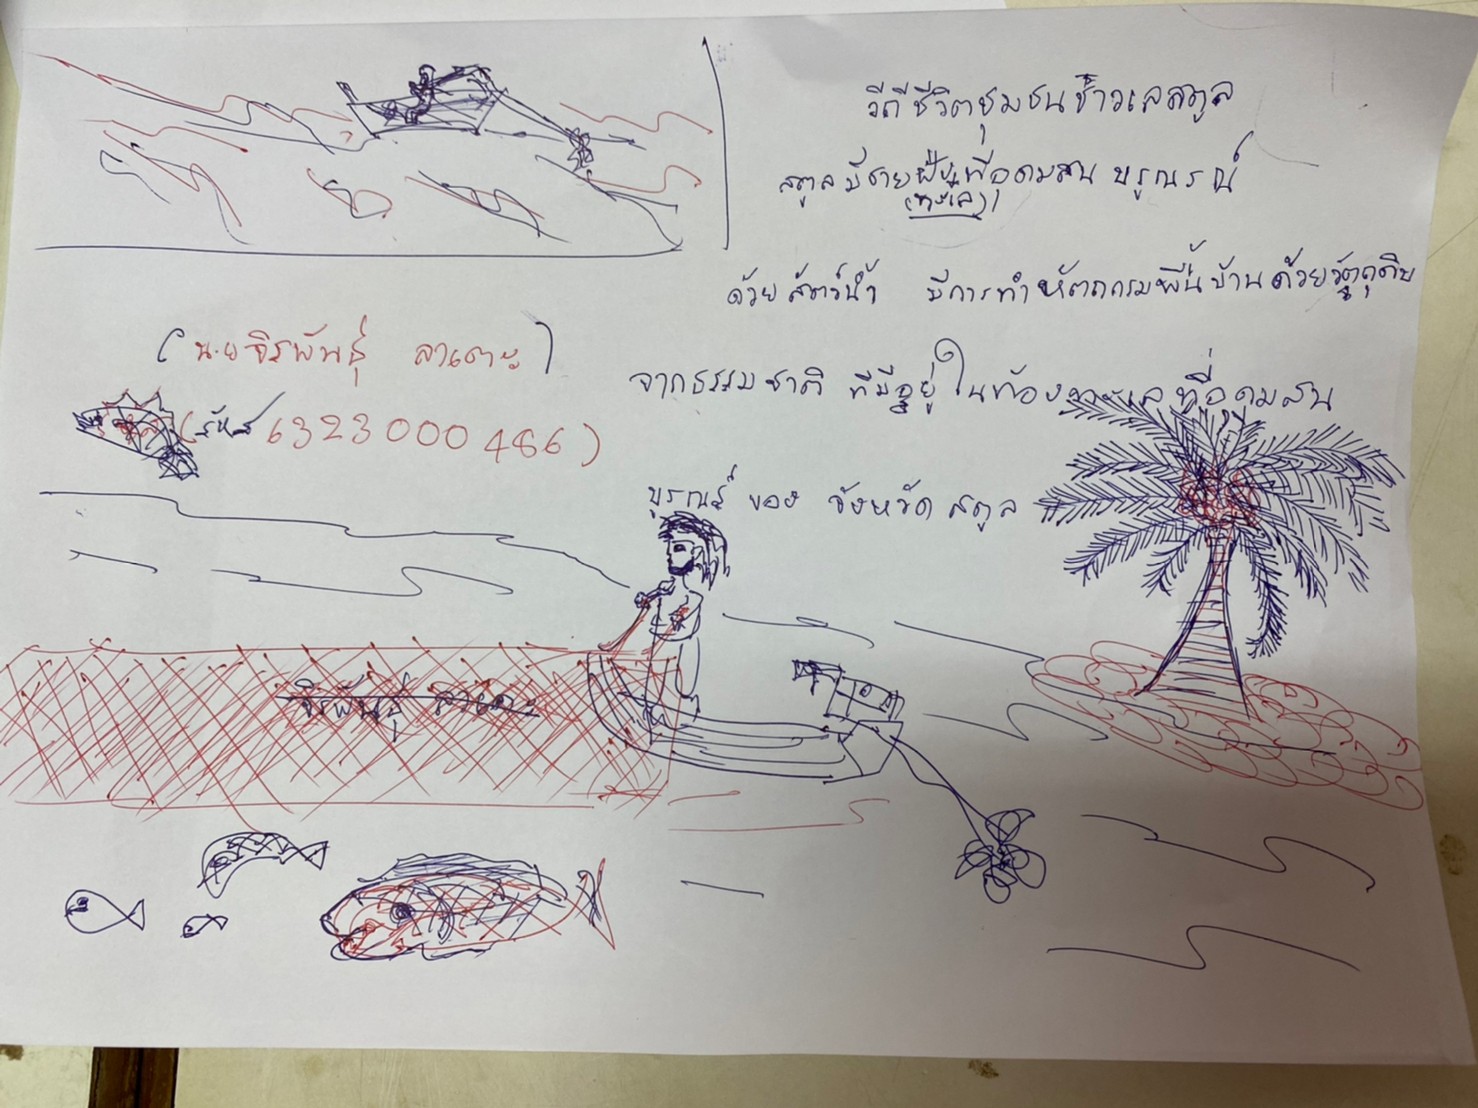 วิถีชีวิตชุมชนชาวเลสตูล
สตูลมีชายฝั่งที่อุดมสมบูรณ์
(ทะเล)
ด้วยสัตว์น้ำ มีการทำหัตถกรรมพื้นบ้านด้วยวัตถุดิบ
จากธรรมชาติ ที่มีอยู่ในท้องทะเลที่อุดมสม
บูรณ์ ของ จังหวัด สตูล
(นายจิรพันธุ์ ลาเตะ)
(รหัส 6323000486)
จิรพันธุ์